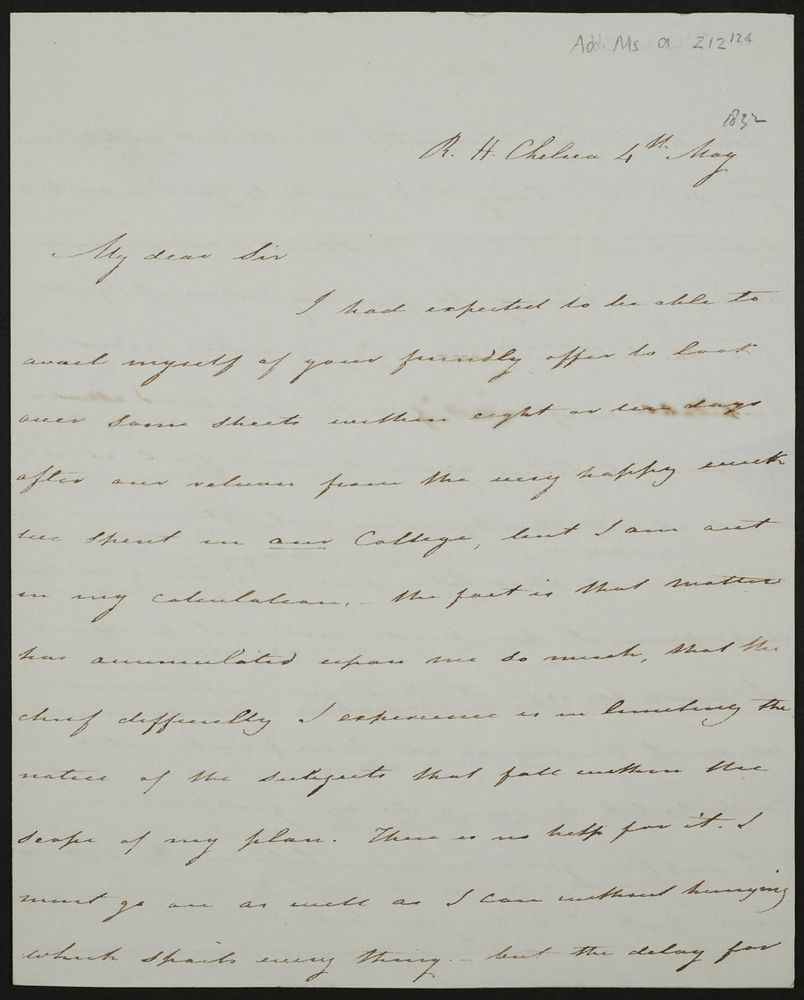 Add. Ms a 212 124
1832
R. H. Chelsea 4th May
My dear Sir
I had expected to be able to
avail myself of your friendly offer to look
over some sheets within eight or ten days
after our return from the very happy week
we spent in our College, but I am out
in my calculation, - the fact is that matter
has accumulated upon me so much, that the
chief difficulty I experience is in limiting the
notice of the subjects that fall within the
scope of my plan. There is no help for it. I
must go on as well as I can without hurrying
which spoils every thing - but the delay for